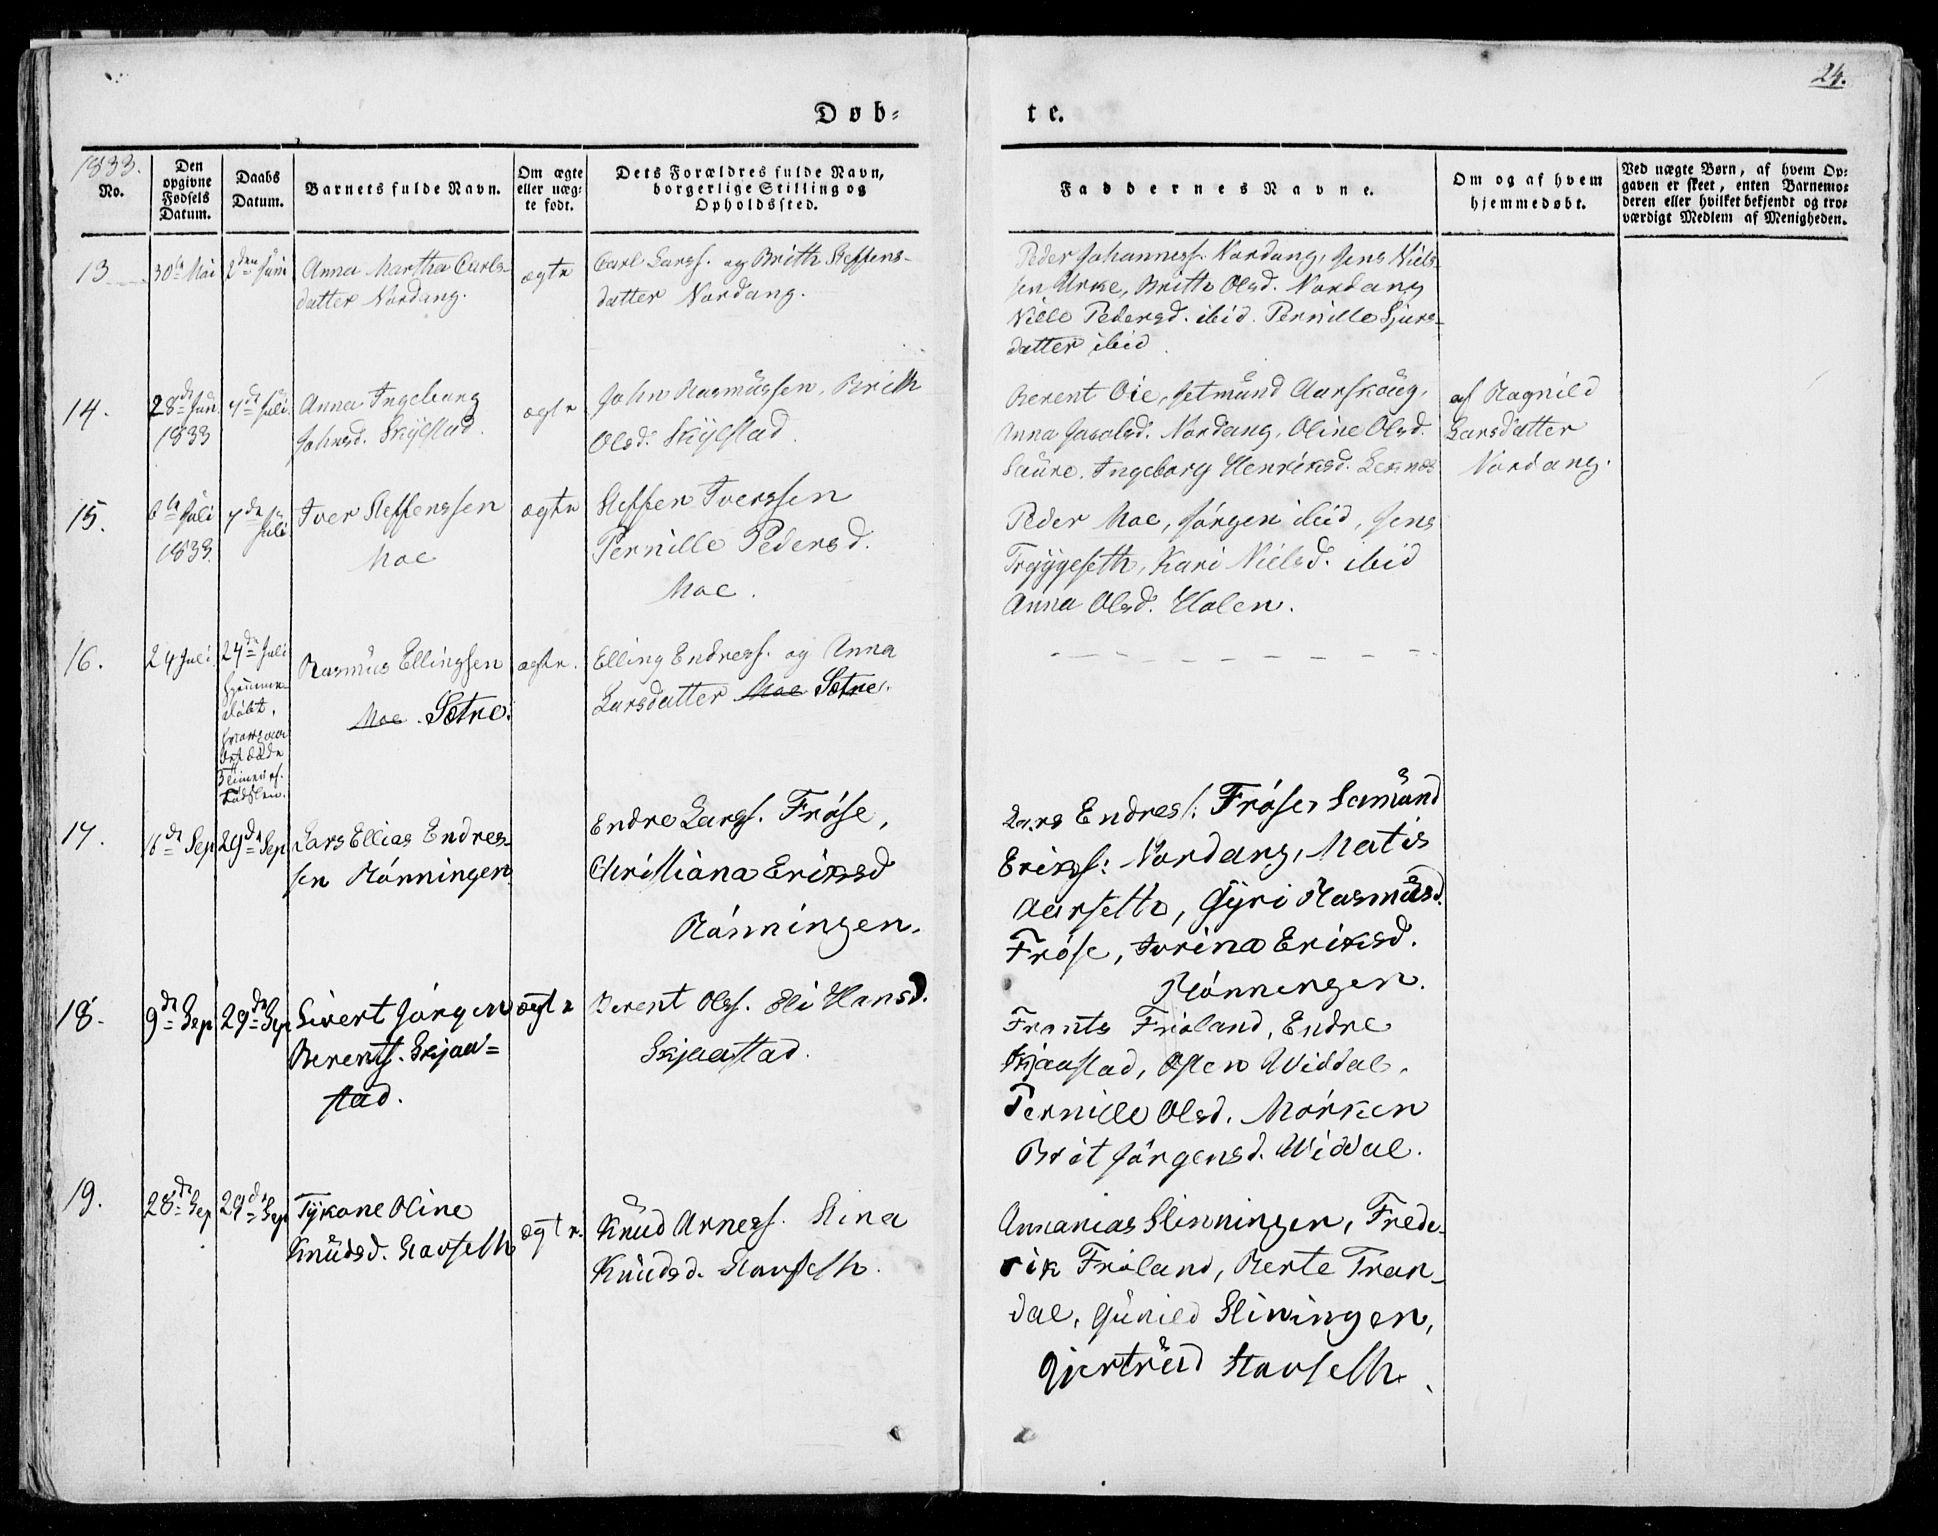 24.
Døb=
te.
1833.
No.
Den
opgivne
Fødsels
Datum.
Daabs
Datum.
Barnets fulde Navn.
Om ægte
eller uæg=
te født.
Dets Forældres fulde Navn,
borgerlige Stilling og
Opholdssted.
Faddernes Navne.
Om og af hvem
hjemmedøbt.
Ved uægte Børn, af hvem Op=
gaven er skeet, enten Barnemo=
deren eller hvilket bekjendt og tro=
værdigt Medlem af Menigheden.
13
30te Mai
2den Juni
Anna Martha Carls-
datter Nordang.
ægte
Carl Larss. og Brith Steffens-
datter Nordang.
Peder Johanness. Nordang, Jens Niels-
sen Urke, Britte Olsd. Nordang
Pedersd. ibid. Pernille Sjurs-
datter ibid.
14.
28de Juni
1833
7de Juli
Anna Ingeborg
Johnsd. Skylstad.
ægte
John Rasmussen, Brith
Olsd. Skylstad.
Berent Oie, Jetmund Aarskoug,
Anna Nordang, Oline Olsd.
Saure. Ingeborg Henriksd. Leknes
af Ragnild
Larsdatter
Nordang.
15.
6te Juli
1833.
7de
Juli
Iver Steffenssen
Moe
ægte
Steffen Iverssen
Pernille Pedersd.
Moe.
Peder Moe, Jørgen ibid, Jens
Tryggeseth, Kari Nielsd. ibid
Anna Olsd. Holen.
16.
24 Juli
24de Juli
hjemme
døbt,
Timer ef.
Fødslen.
Rasmus Ellingsen
Moe. Sætre.
ægte.
Elling Endress. og Anna
Larsdatter Moe Sætre.
17.
6de Sep
29de Sep
Lars Ellias Endres-
sen Rønningen
Endre Larss. Frøse,
Christiana Eriksd
Rønningen.
Lars Endress: Frøse, Samund
Erikss: Nordang, Matis
Aarseth, Gyri Rasmusd.
Frøse, Ivrina Eriksd.
Rønningen.
18.
9de Sep
29de Sep
Sivert Jørgen
Berents. Skjaa=
stad.
ægte
Berent Olss. Eli Hansd.
Skjaastad.
Frants Frøland, Endre
Skjaastad, Osten Widdal,
Pernille Olsd. Mørken
Brit Jørgensd. Widdal.
19.
28de Sep
29de Sep
Tykone Oline
Knudsd. Stavseth
ægte.
Knud Arness. Stina
Knudsd. Stavseth.
Annanias Slinningen, Frede-
rik Frøland, Berte Tran-
dal, Gunild Sliningen,
Gjertrud Stavseth.